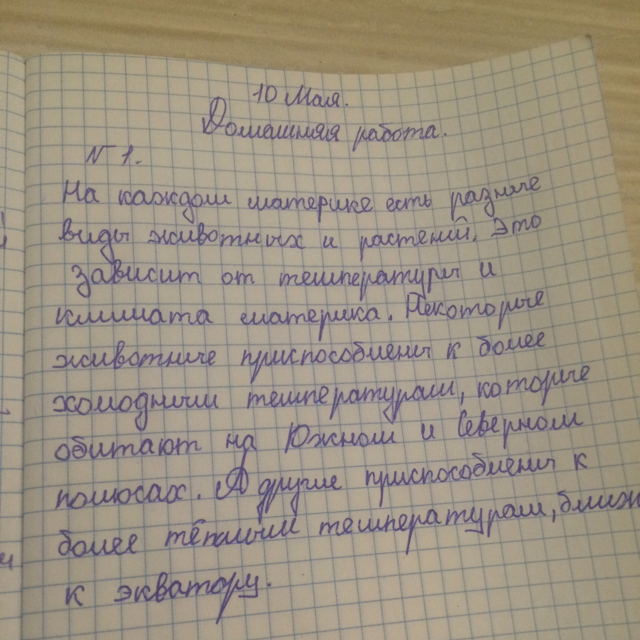 10 Мая.
Домашняя работа.
№ 1.
На каждом материке есть разные
виды животных и растений. Это
зависит от температуры и
климата материка. Некоторые
животные приспособлены к более
холодным температурам, которые
обитают на Южном и Северном
полюсах. А другие приспособлены к
более тёплым температурам, ближ
к экватору.